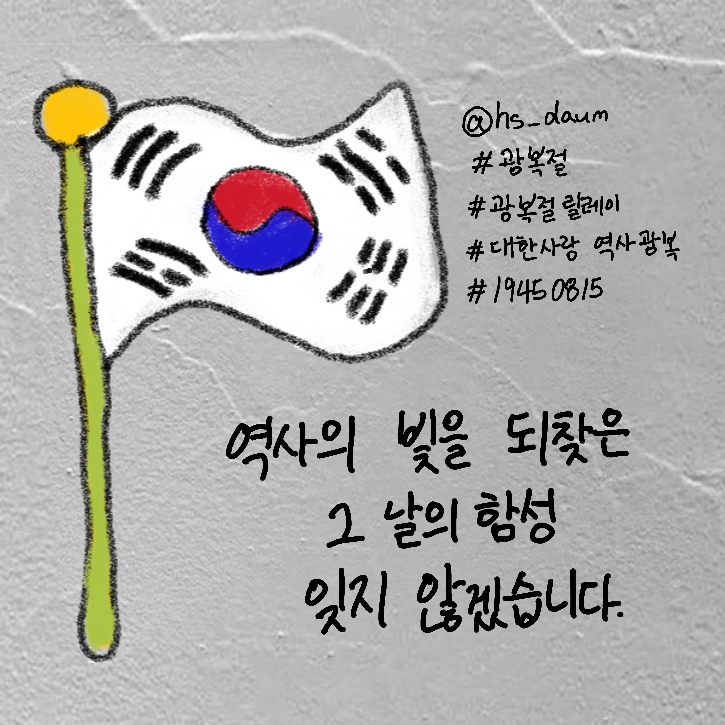 @hs_daum
#광복절
#광복절릴레이
#대한사랑 역사광복
#19450815
역사의 빛을 되찾은
그 날의 함성
잊지 않겠습니다.